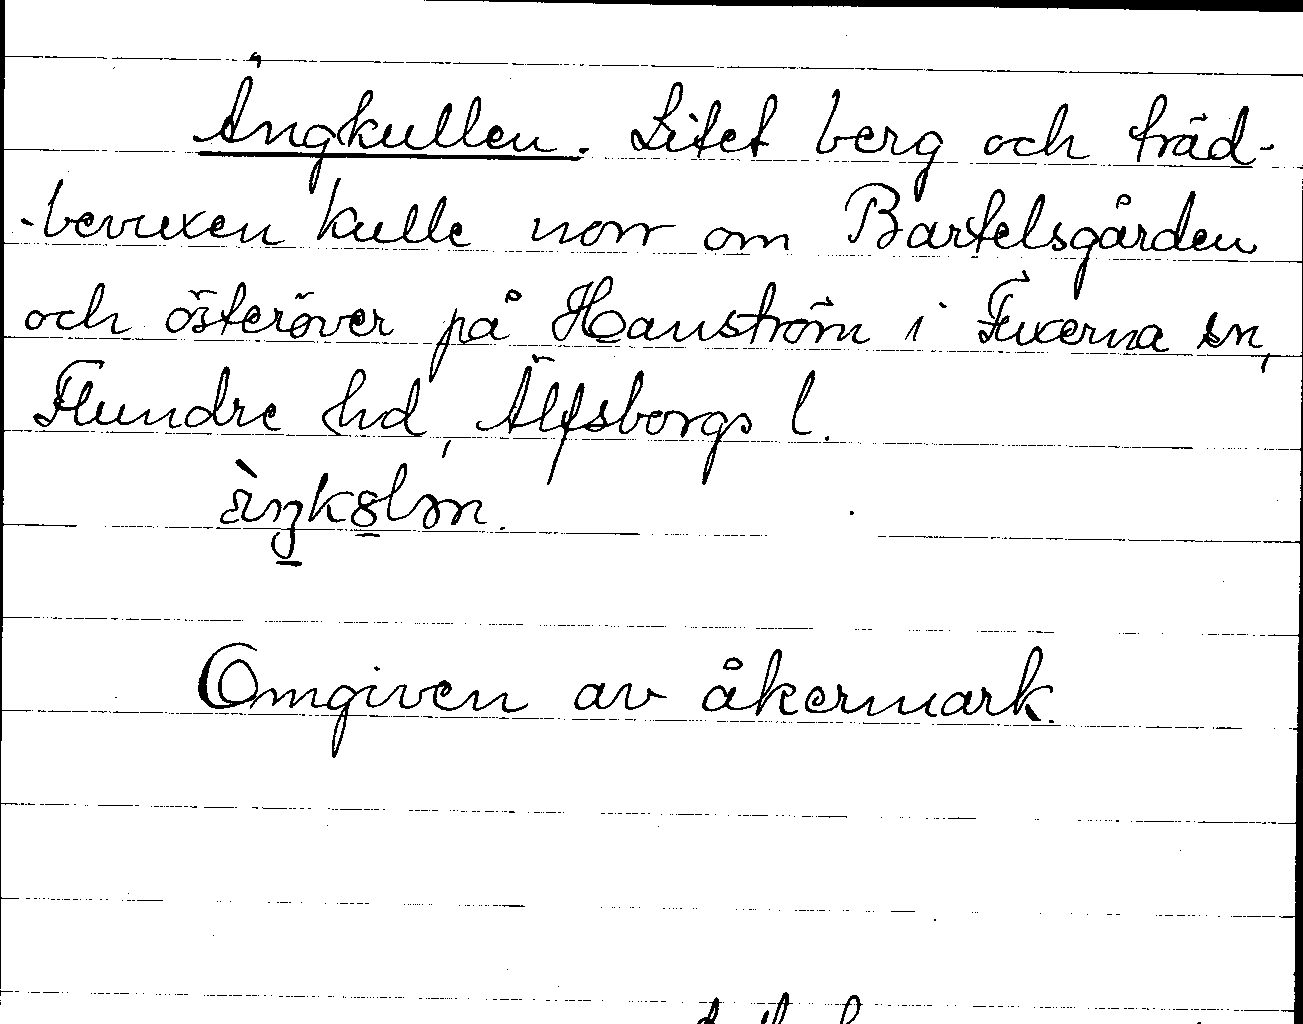 Ängkullen. Litet berg och träd-
-bevuxen kulle norr om Bartelsgården
och österöver på Hanström i Fuxerna sn,
Flundre hd, Älfsborgs l.
Omgiven av åkermark.